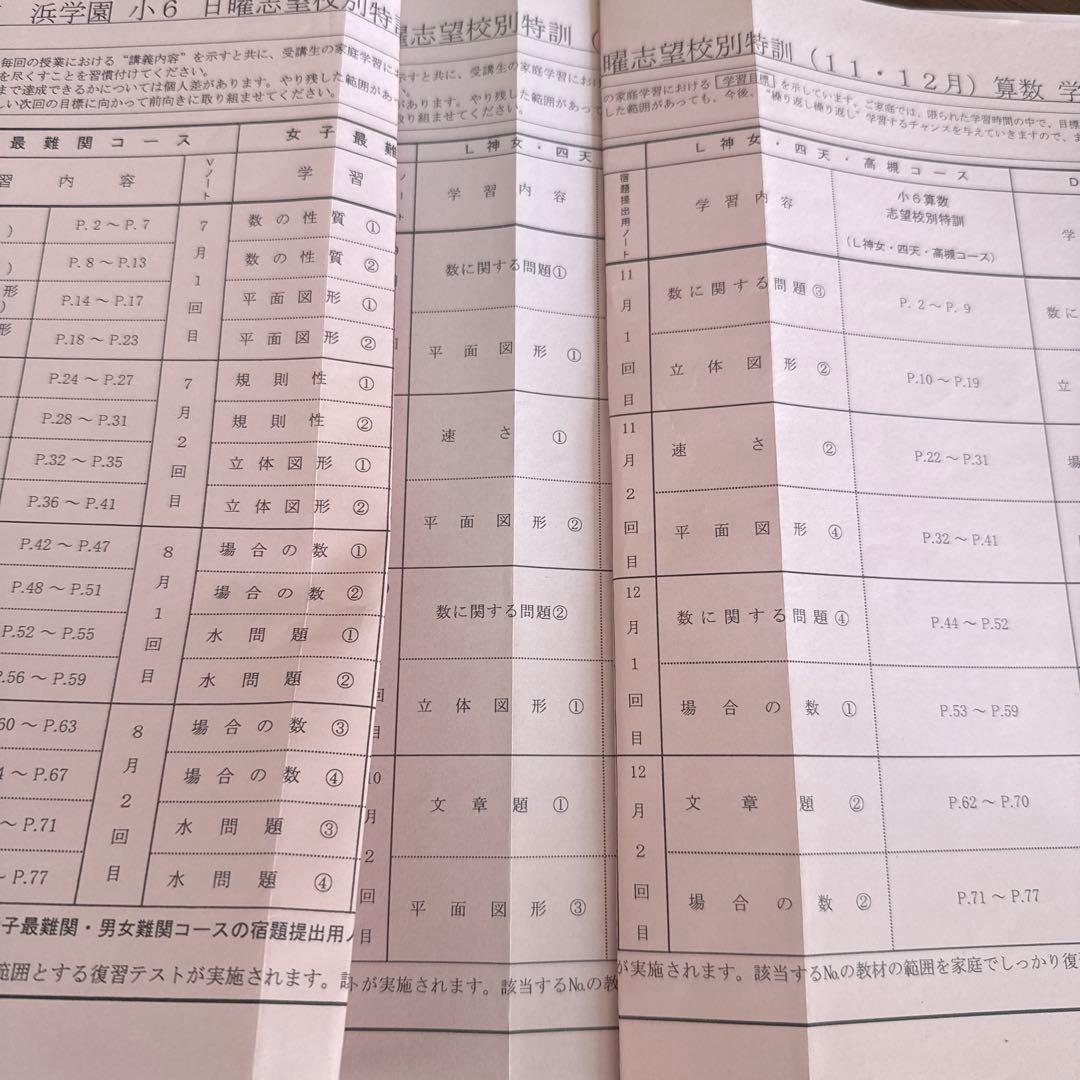 浜学園 小6 日曜志望校別特訓
毎回の授業における“講義内容”を示すと共に、受講生の家庭学習に
を尽くすことを習慣付けてください。
まで達成できるかについては個人差があります。やり残した範囲があ
しい次回の目標に向かって前向きに取り組ませてください。
最難関コース
女子最難
習内容
Vノート
学習
P. 2～P. 7
7月1回目
数の性質①
P. 8～P.13
数の性質②
形
P.14～P.17
平面図形①
形
P.18～P.23
平面図形②
P.24～P.27
7月2回目
規則性①
P.28～P.31
規則性②
P.32～P.35
立体図形①
P.36～P.41
立体図形②
P.42～P.47
8月1回目
場合の数①
P.48～P.51
場合の数②
P.52～P.55
水問題①
P.56～P.59
水問題②
60～P.63
8月2回目
場合の数③
～P.67
場合の数④
～P.71
水問題③
～P.77
水問題④
子最難関・男女難関コースの宿題提出用ノ
範囲とする復習テストが実施されます。
志望校別特訓（
示すと共に、受講生の家庭学習におけ
あります。やり残した範囲があって
取り組ませてください。
L神女・四天
学習内容
数に関する問題①
平面図形①
速さ①
平面図形②
数に関する問題②
立体図形①
10月2回目
文章題①
平面図形③
トが実施されます。該当するNo.の教
曜志望校別特訓（11・12月）算数 学
の家庭学習における学習目標を示しています。ご家庭では、限られた学習時間の中で、目標
した範囲があっても、今後、“繰り返し繰り返し”学習するチャンスを与えていきますので、
L神女・四天・高槻コース
D
宿題提出用ノート
学習内容
小6算数
志望校別特訓
（L神女・四天・高槻コース）
学
11月1回目
数に関する問題③
P. 2～P. 9
数に
立体図形②
P.10～P.19
立
11月2回目
速さ②
P.22～P.31
場
平面図形④
P.32～P.41
12月1回目
数に関する問題④
P.44～P.52
場合の数①
P.53～P.59
12月2回目
文章題②
P.62～P.70
場合の数②
P.71～P.77
が実施されます。該当するNo.の教材の範囲を家庭でしっかり復